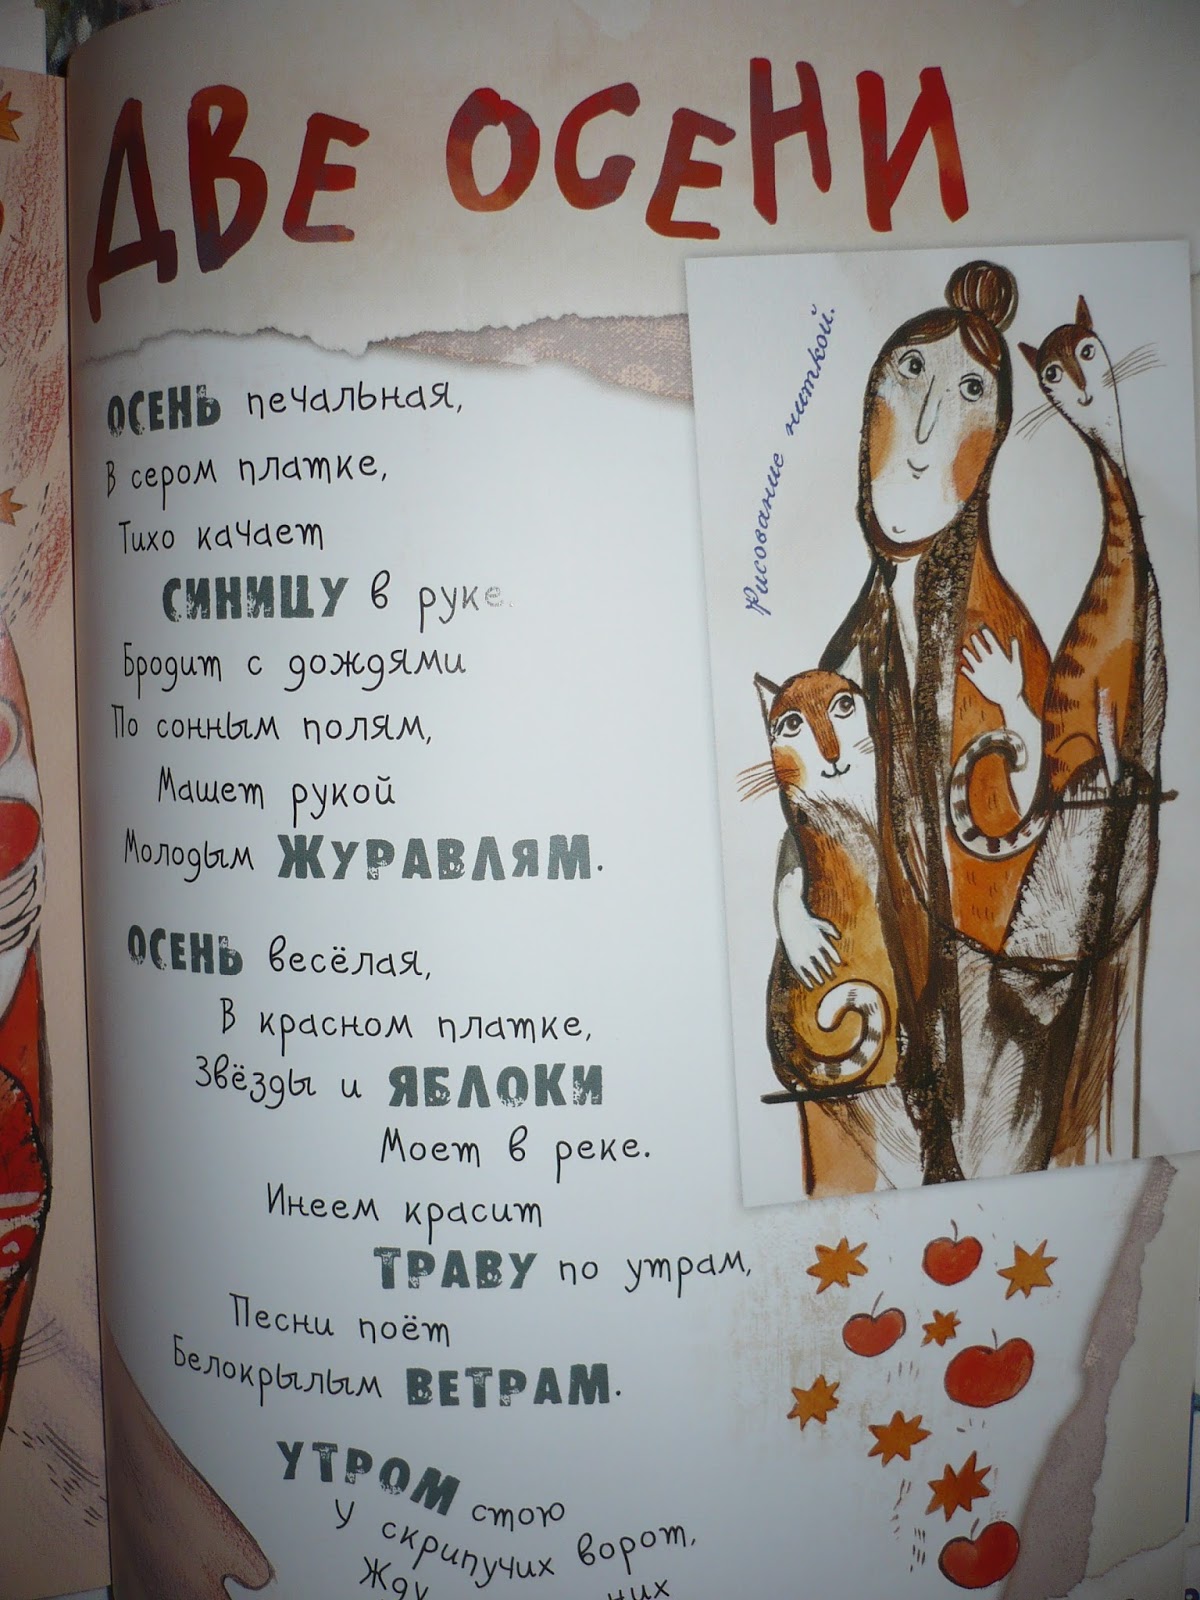 ДВЕ ОСЕНИ
Рисование ниткой.
ОСЕНЬ печальная,
В сером платке,
Тихо качает
СИНИЦУ в руке.
Бродит с дождями
По сонным полям,
Машет рукой
Молодым ЖУРАВЛЯМ.
ОСЕНЬ весёлая,
В красном платке,
Звёзды и ЯБЛОКИ
Моет в реке.
Инеем красит
ТРАВУ по утрам,
Песни поёт
Белокрылым ВЕТРАМ.
УТРОМ стою
У скрипучих ворот,
Жду